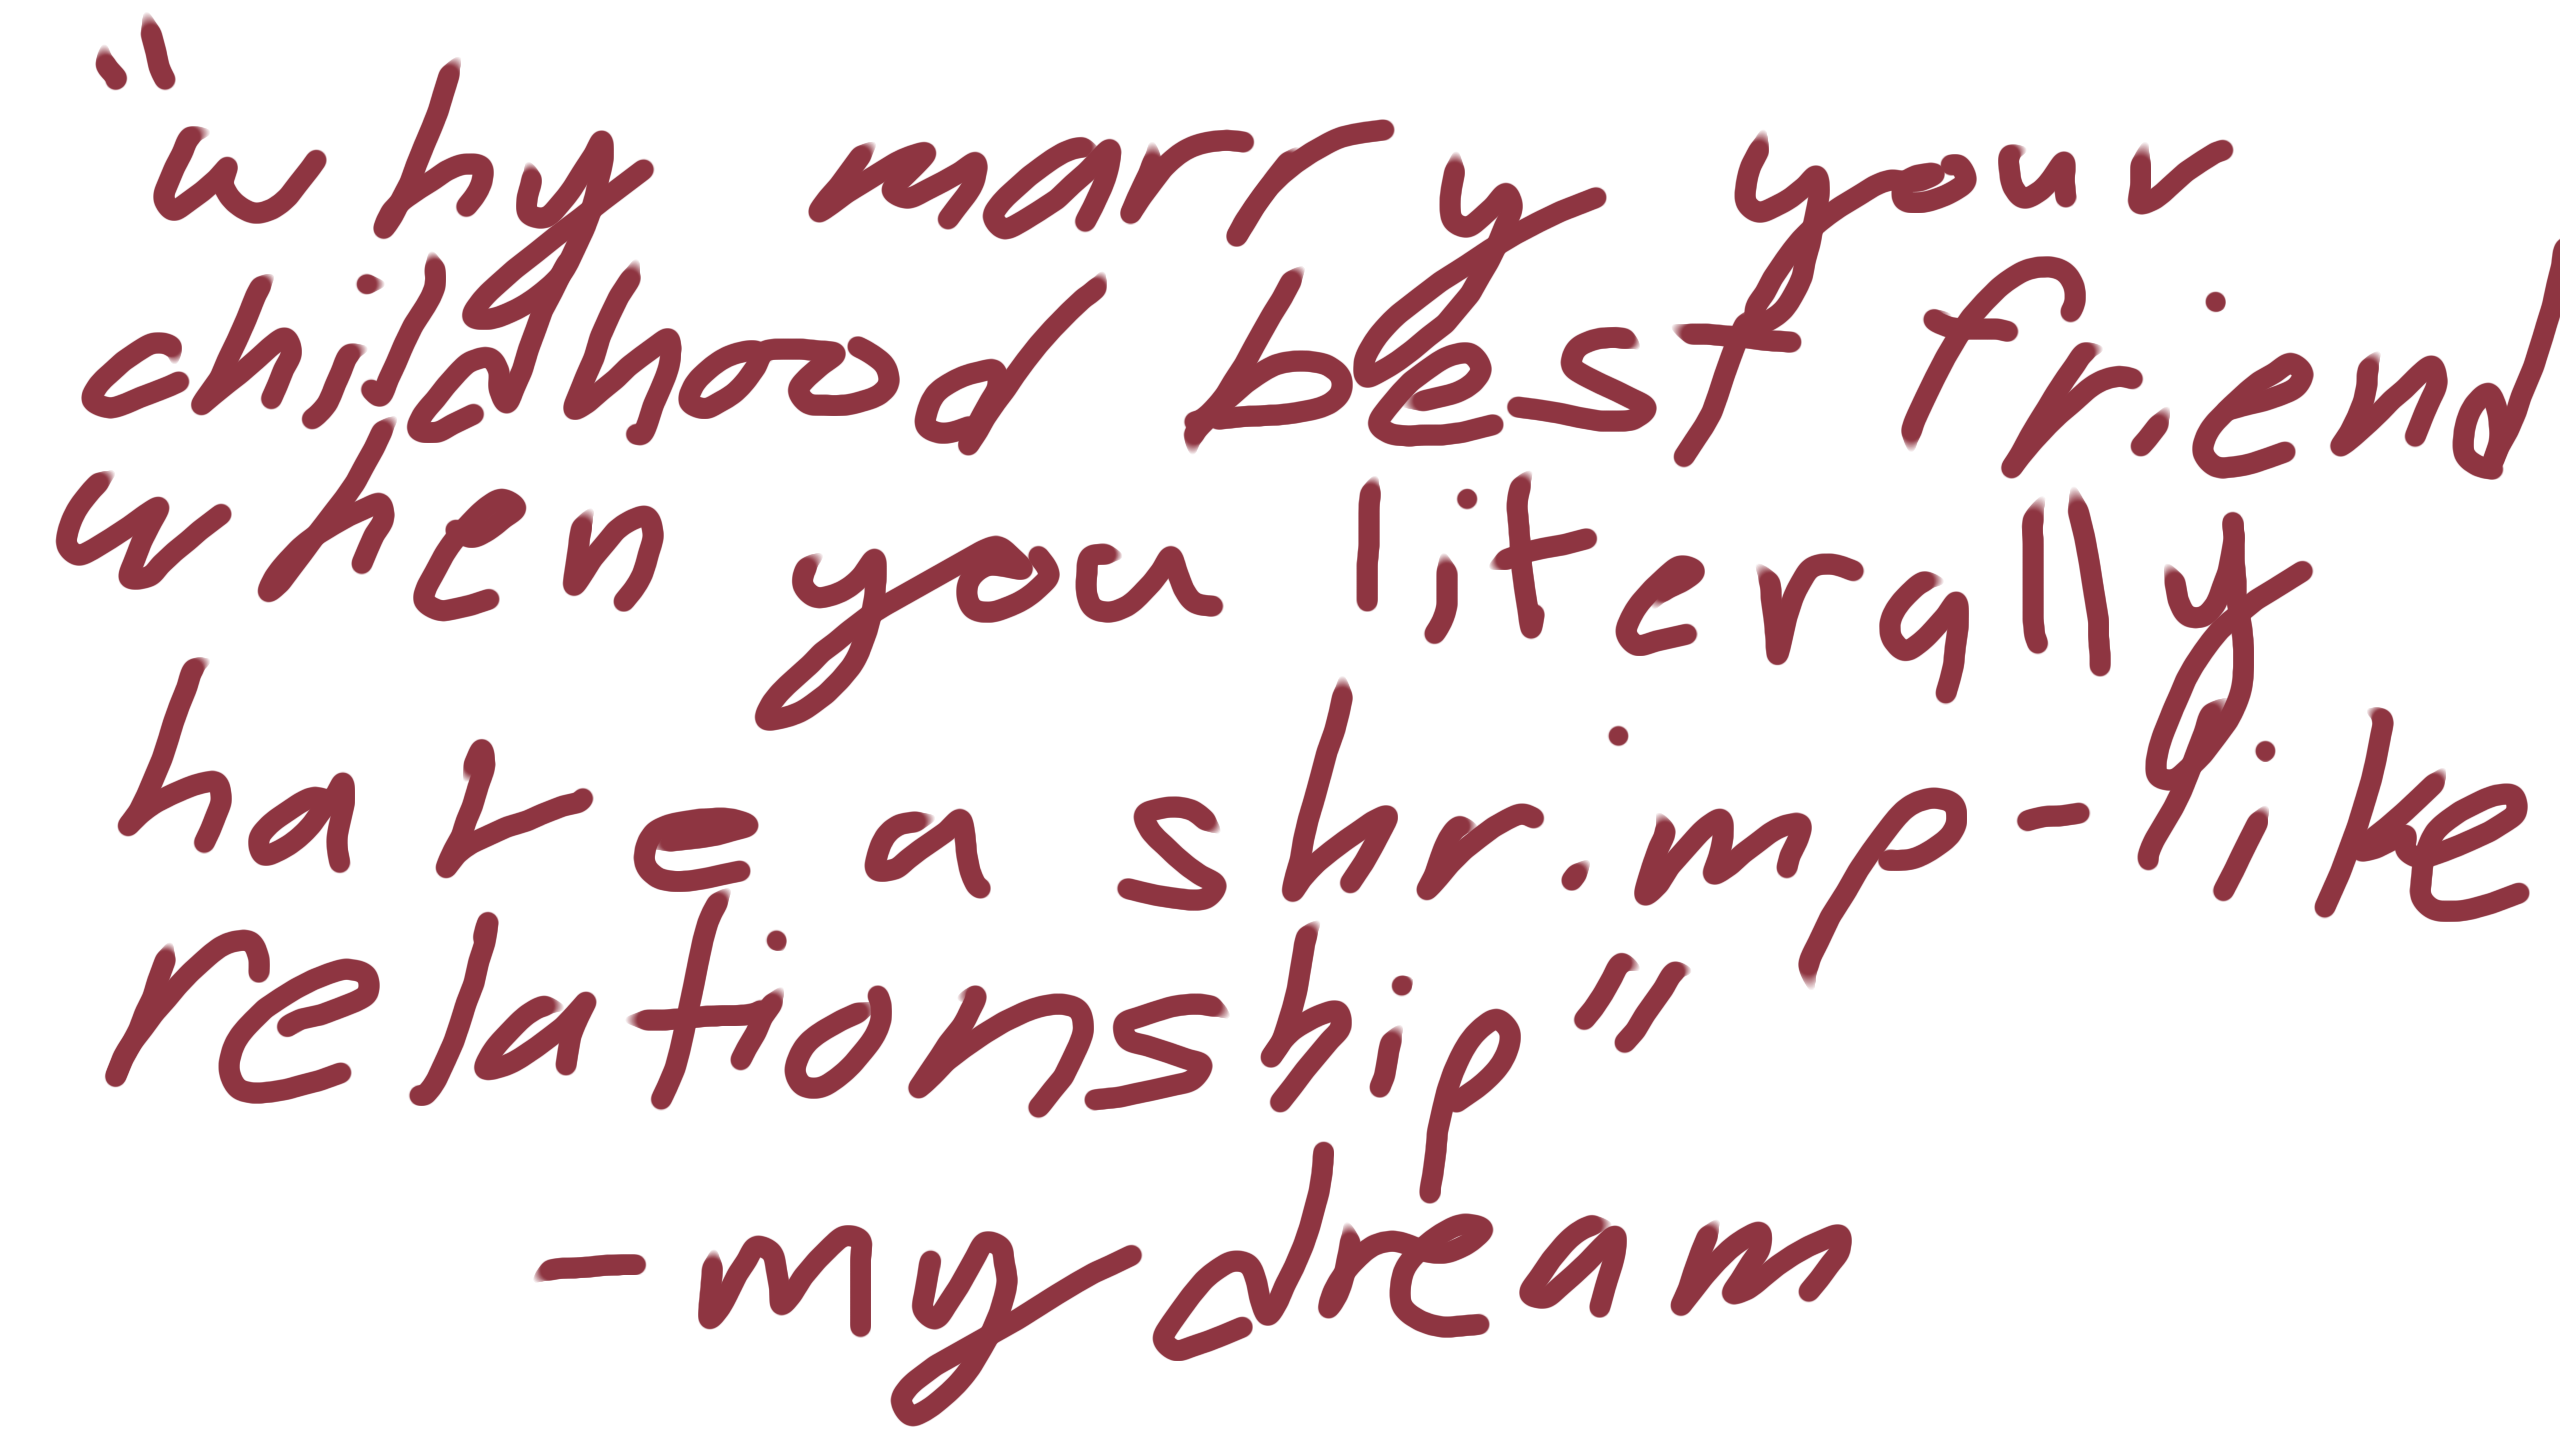 "why marry your
childhood best friend
when you literally
have a shrimp-like
relationship"
-my dream